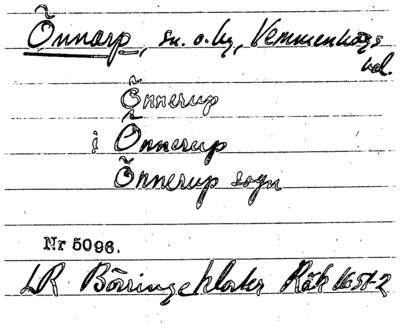 Õnnarp, sn. o. by, Vemmenhögs
hd.
Õnnerup
i Õnnerup
Õnnerup sogn
Nr 5096.
LR Börringekloster Räk 1651-2